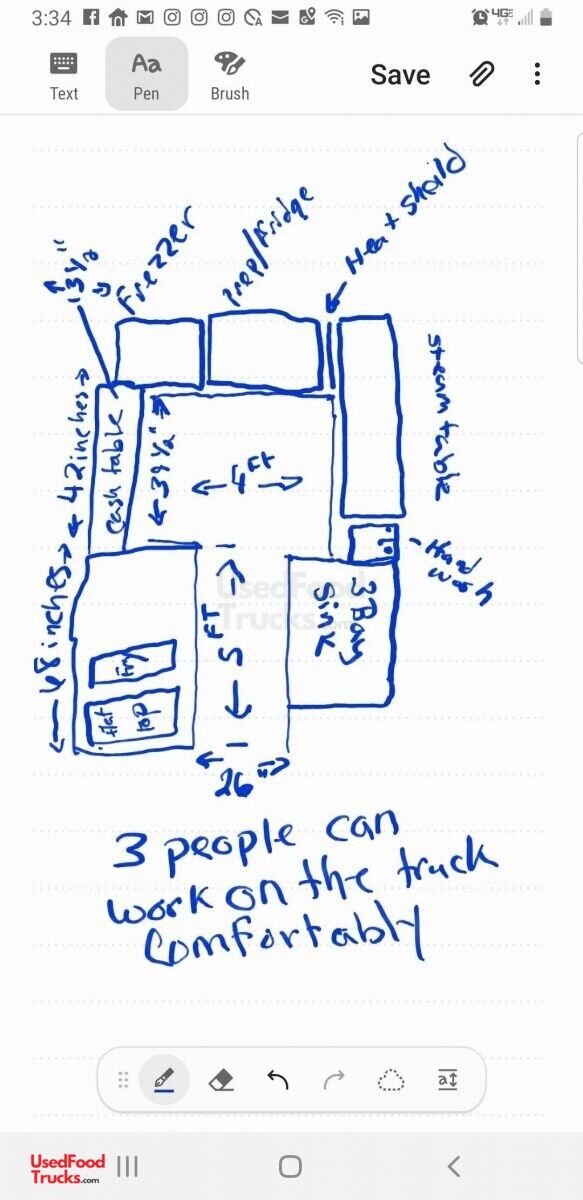 3:34
4GE
Text
Aa
Pen
Brush
Save
13 1/2"
Frezzer
Prep/Fridge
Heat sheild
42 inches
Cash table
39 1/2"
4 FT
Steam table
Hand
wash
48 inches
UsedFood
Trucks.com
5 FT
3 Bay
Sink
Fry
flat
top
26"
3 people can
work on the truck
Comfortably
UsedFood
Trucks.com